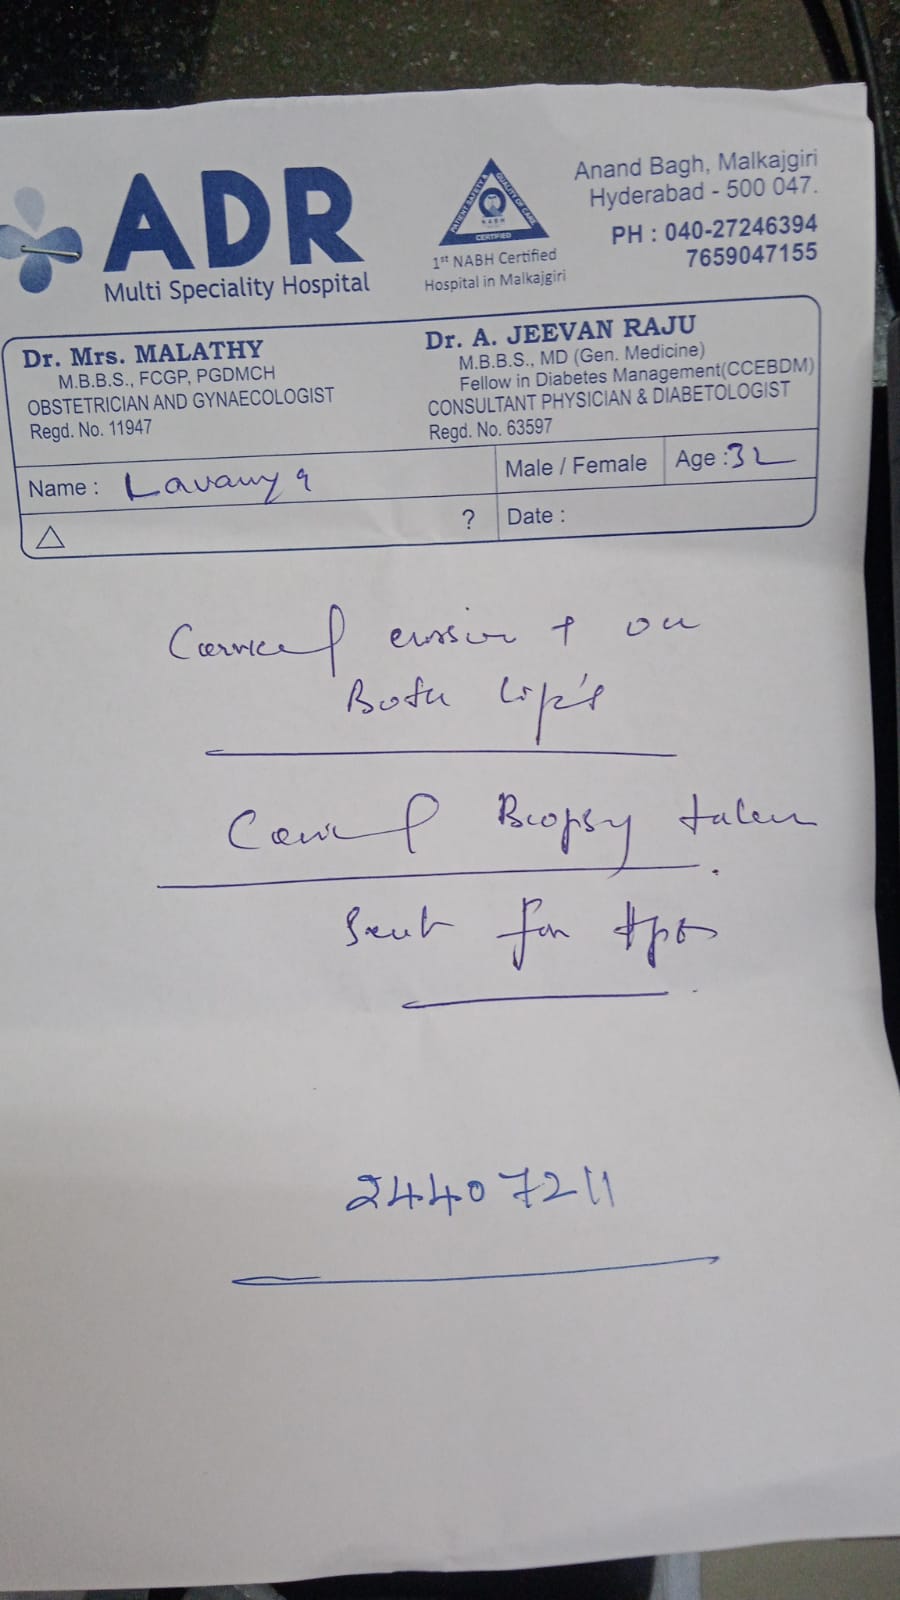 ADR
Multi Speciality Hospital
PATIENT SAFETY & QUALITY OF CARE
NABH
CERTIFIED
1st NABH Certified
Hospital in Malkajgiri
Anand Bagh, Malkajgiri
Hyderabad - 500 047.
PH : 040-27246394
7659047155
Dr. Mrs. MALATHY
M.B.B.S., FCGP, PGDMCH
OBSTETRICIAN AND GYNAECOLOGIST
Regd. No. 11947
Dr. A. JEEVAN RAJU
M.B.B.S., MD (Gen. Medicine)
Fellow in Diabetes Management(CCEBDM)
CONSULTANT PHYSICIAN & DIABETOLOGIST
Regd. No. 63597
Name : Lavanya
Male / Female
Age : 32
△ ?
Date :
Cervical erosion + on
Both lip's
Cervical Biopsy taken.
Sent for
24407211